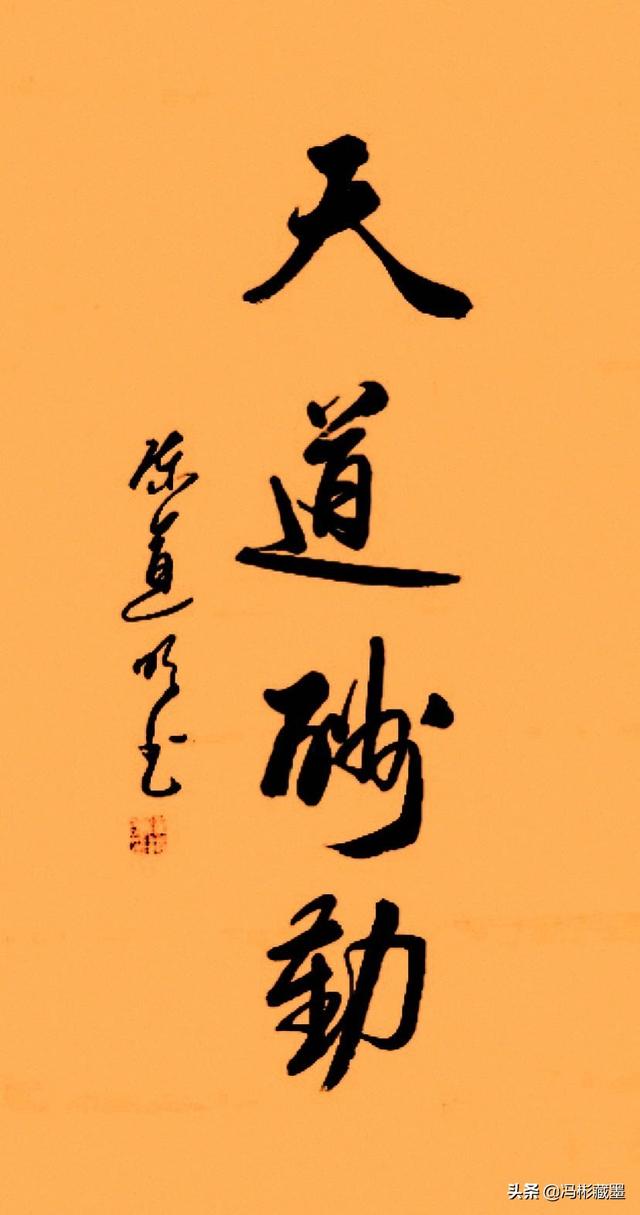 天道酬勤
陈道明书
头条 @冯彬藏墨